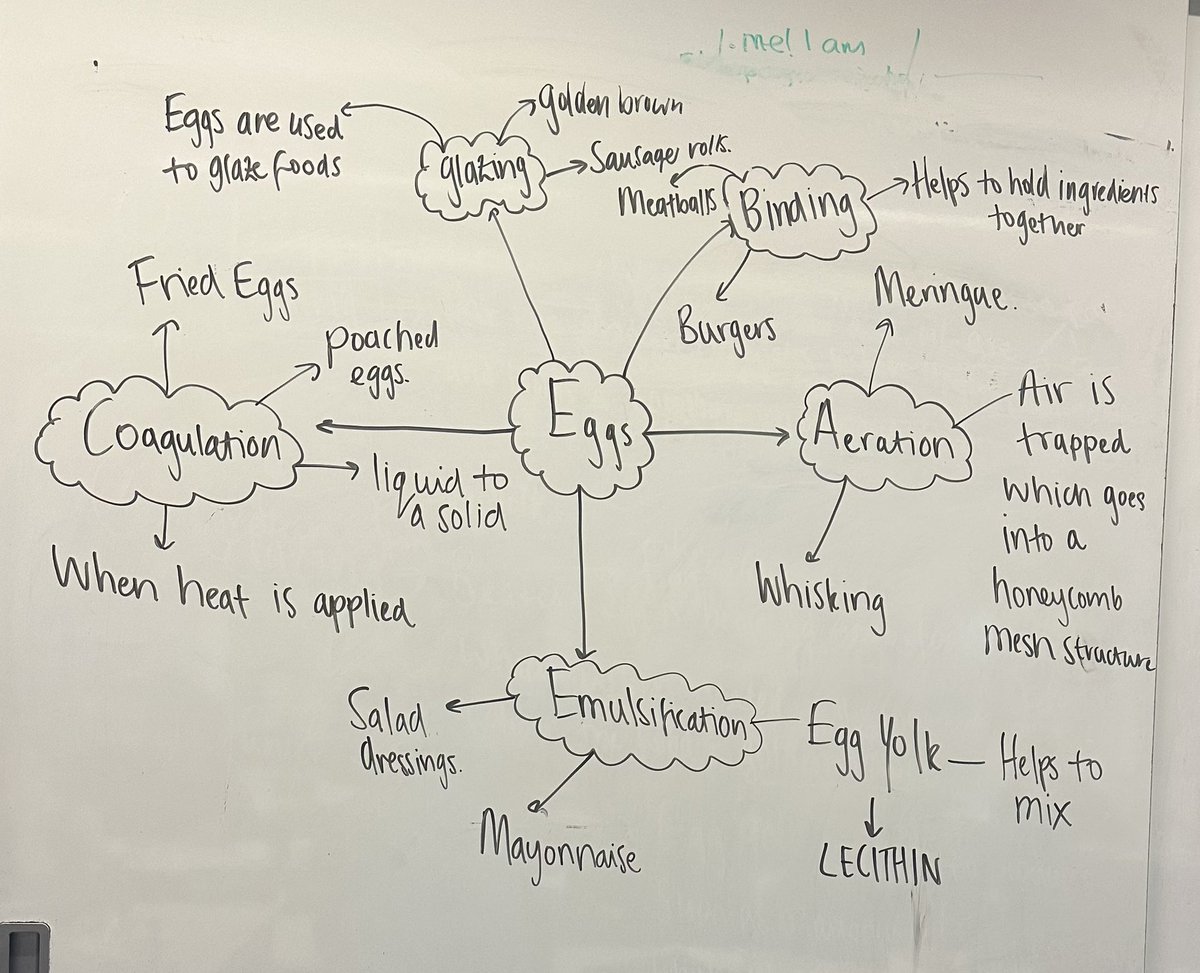 I am
Eggs are used
to glaze foods
glazing
golden brown
Sausage rolls.
Meatballs
Binding
Helps to hold ingredients
together
Burgers
Fried Eggs
poached
eggs.
Coagulation
liquid to
a solid
When heat is applied
Eggs
Meringue.
Aeration
Air is
trapped
which goes
into a
honeycomb
mesh structure
Whisking
Emulsification
Salad
dressings.
Mayonnaise
Egg Yolk — Helps to
mix
LECITHIN